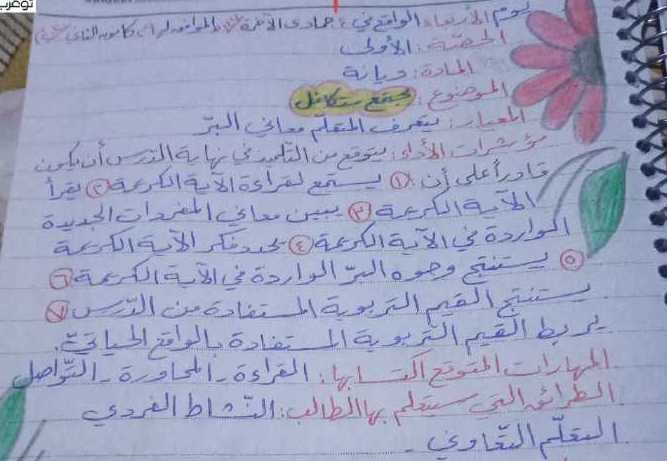 يوم الأربعاء الواقع في ٤ جمادى الآخرة الموافق كانون الثاني
الحصّة: الأولى
المادة: ديانة
الموضوع: مجتمع متكافل
المعيار: يتعرف المتعلّم معاني البرّ
مؤشرات الأداء: يتوقع من التلميذ في نهاية الدّرس أن يكون
قادراً على أن: ١ يستمع لقراءة الآية الكريمة ٢ يقرأ
الآية الكريمة ٣ يبين معاني المفردات الجديدة
الواردة في الآية الكريمة ٤ يحدد فكر الآية الكريمة
٥ يستنتج وجوه البرّ الواردة في الآية الكريمة ٦
يستنتج القيم التربوية المستفادة من الدّرس ٧
يربط القيم التربوية المستفادة بالواقع الحياتيّ.
المهارات المتوقع اكتسابها: القراءة - المحاورة - التّواصل
الطرائق التي سيتعلم بها الطالب: النّشاط الفردي
التعلّم التّعاوني -